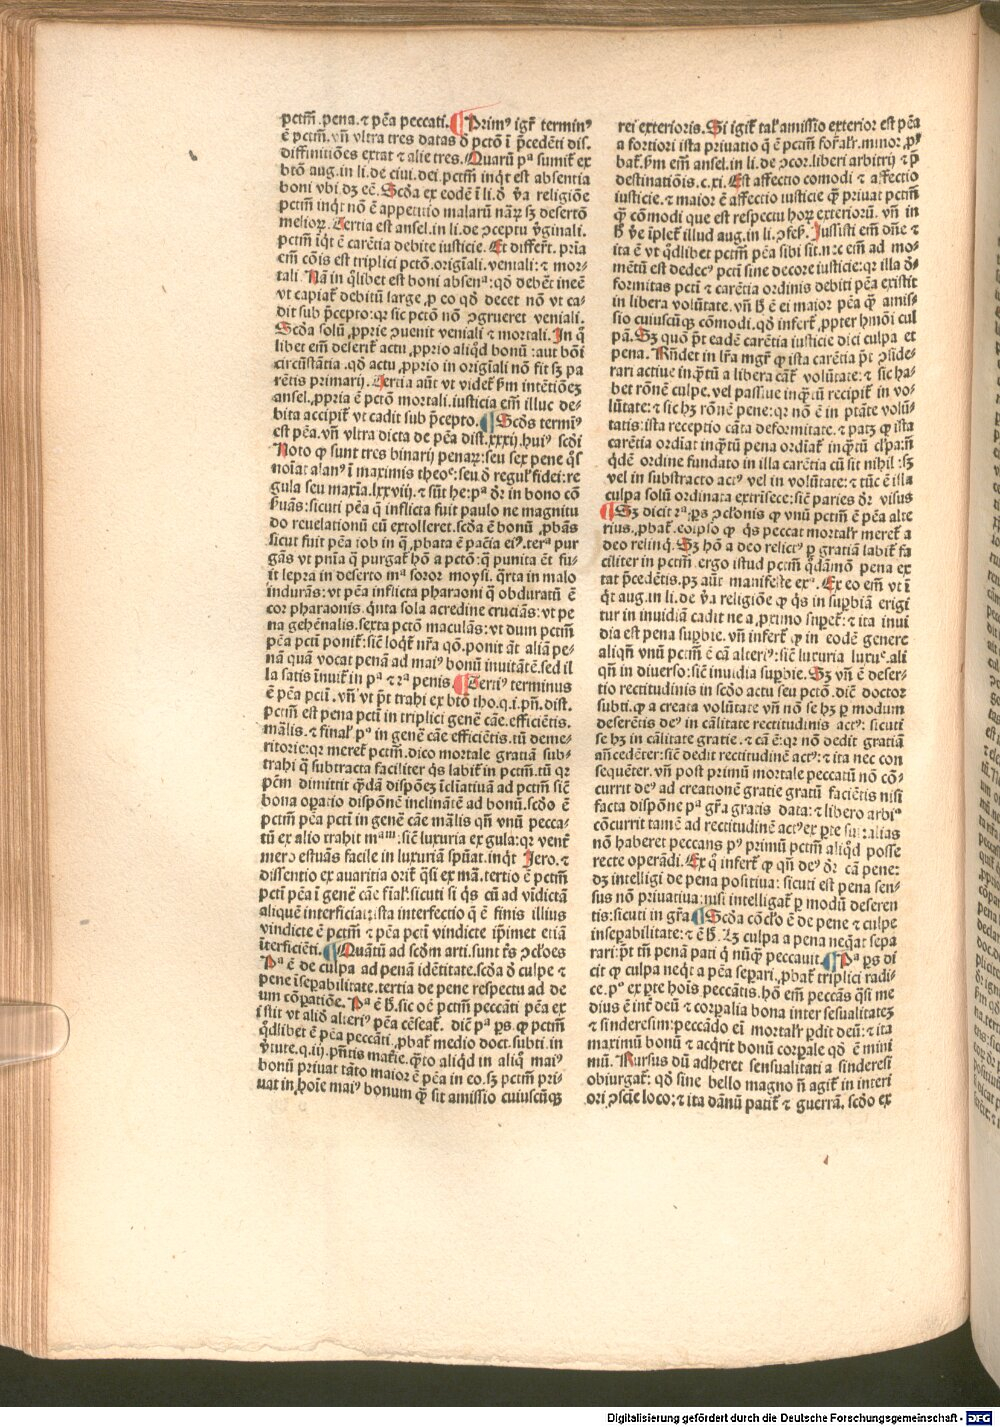 pctm̄.pena.⁊ pēa peccati. ¶ Primꝰ igr̄ terminꝰ
ē pctm̄.vn̄ vltra tres datas ō pctō ī p̄cedēti dis.
diffinitiōes extat ⁊ alie tres. Quarū pᵃ sumit ex
btō aug.in li.de ciui.dei.pctm̄ inqͭ est absentia
boni vbi dꝫ eē. Scōa ex eodē ī li.ō v̄a religiōe
pctm̄ inqt nō ē appetitio malarū naꝝ sꝫ desertō
melioꝝ. Tertia est ansel.in li.de ꝯceptu v̄ginali.
pctm̄ īqt ē carētia debite iusticie. Et differt. pria
em̄ cōis est triplici pctō.origīali.veniali:⁊ mor-
tali. Nā in qͥlibet est boni absenᵃ:qō debēt ineē
vt capiat̄ debitū large.p eo qō decet nō vt ca-
dit sub p̄cepto:qr sic pctō nō ꝯgrueret veniali.
Scōa solū ꝓprie ꝯuenit veniali ⁊ mortali. In q̄
libet em̄ deserit̄ actu ꝓprio aliqd bonū:aut bōi
circūstātia.qō actu ꝓprio in origīali nō fit sꝫ pa
rētis primarij. Tertia aūt vt videt̄ ẜm intētiōeꝫ
ansel.ꝓpria ē pctō mortali.iusticia em̄ illuc de-
bita accipit̄ vt cadit sub p̄cepto. ¶ Scōs termīꝰ
est pēa.vn̄ vltra dicta de pēa dist.xxxij.huiꝰ scōi
Noto ꝙ sunt tres binarij penaꝝ:seu sex pene q̄s
noīat alanꝰ ī maximis theoᵉ:seu ō regul̄ fidei:re
gula seu maxīa.lxxviij.⁊ sūt he:pᵃ ōr in bono cō
ẜuās:sicuti pēa q̄ inflicta fuit paulo ne magnitu
do reuelationū eū extolleret.scōa ē bonū ꝓbās
sicut fuit pēa iob in q̄ ꝓbata ē paciētia eiꝰ.terᵃ pur
gās vt pnīa q̄ purgat̄ hō a pctō:q̄ punita ēt fu-
it lepra in deserto mᵃ soror moysi.qͣrta in malo
indurās:vt pēa inflicta pharaoni q̄ obduratū ē
cor pharaonis.qͥnta sola acredine cruciās:vt pe
na gehēnalis.sexta pctō maculās:vt dum pctm̄
pēa pcti ponit̄:sic̄ loqt̄ nr̄a qō.ponit āt aliā pe-
nā quā vocat penā ad maiꝰ bonū inuitātē.sed il
la satis īnuit̄ in pᵃ ⁊ 2ᵃ penis ¶ Tertiꝰ terminus
ē pēa pcti.vn̄ vt pt̄ trahi ex btō tho.q.i.pn̄.dist.
pctm̄ est pena pcti in triplici genē cāe.efficiētis.
mālis.⁊ final̄ pᵃ in genē cāe efficiētis.tū deme-
ritorie:qr meret̄ pctm̄.dico mortale gratiā sub-
trahi q̄ subtracta faciliter q̄s labit̄ in pctm̄.tū qr
pctm̄ dimittit qͥdā dispōeꝫ īcliatiuā ad pctm̄ sic̄
bona opatio dispōnē inclināte ad bonū.scōo ē
pctm̄ pēa pcti in genē cāe mālis qn̄ vnū pecca-
tū ex alio trahit mᵃᵐ:sic̄ luxuria ex gula:qr vent̄
mero estuās facile in luxuriā spūat.inqt Jero.⁊
dissentio ex auaritia orit̄ qͥsi ex mā.tertio ē pctm̄
pcti pēa ī genē cāe fīal̄.sicuti si q̄s cū ad vīdictā
aliquē interficiat:ista interfectio q̄ ē finis illius
vindicte ē pctm̄ ⁊ pēa pcti vindicte ip̄imet etiā
īterficiēti. ¶ Quātū ad scōm arti.sunt tr̄s ꝯcloēs
Pᵃ ē de culpa ad penā idētitate.scōa ō culpe ⁊
pene īseparabilitate.tertia de pene respectu ad de
um cōpatiōe. Pᵃ ē ħ.sic oē pctm̄ peccāti pēa ex
istit vt aliō alteriꝰ pēa cēseat̄. dic̄ pᵃ ps.ꝙ pctm̄
qͥdlibet ē pēa peccāti.ꝓbat̄ medio doct.subti.in
v̄tute.q.iij.pn̄tis matie.q̄to aliqd in aliq̄ maiꝰ
bonū priuat tāto maior ē pēa in eo.sꝫ pctm̄ pri-
uat in hoīe maiꝰ bonum qͣꝫ sit amissio cuiuscūqꝫ
rei exterioris. Si igit̄ tal̄ amissio exterior est pēa
a fortiori ista priuatio q̄ ē pctm̄ for̄alr̄.minor.ꝓ
bat̄.ẜm em̄ ansel.in li.de ꝯcor.liberi arbitrij ⁊ p̄
destinatiōis.c.xi. Est affectio comodi ⁊ affectio
iusticie.⁊ maior ē affectio iusticie qͣꝫ priuat pctm̄
qͣꝫ cōmodi que est respectu hoꝝ exterioꝝ. vn̄ in
ħ v̄e īplet̄ illud aug.in li.ꝯfeſ. Iussisti em̄ dn̄e ⁊
ita ē vt qͥdlibet pctm̄ pēa sibi sit.nec em̄ ad mo-
mētū est dedecꝰ pcti sine decore iusticie:qr illa ō-
formitas pcti ⁊ carētia ordinis debiti pēa existit
in libera volūtate.vn̄ ħ ē ei maior pēa qͣꝫ amis-
sio cuiuscūqꝫ cōmodi.qō infert̄ ꝓpter hmōi cul
pā. Sꝫ quō pt̄ eadē carētia iusticie dici culpa et
pena. Rn̄det in lr̄a mgr̄ ꝙ ista carētia pt̄ ꝯside-
rari actiue inqͣtū a libera cāt̄ volūtate:⁊ sic ha-
bet rōnē culpe.vel passiue inqͣtū recipit̄ in vo-
lūtate:⁊ sic hꝫ rōnē pene:qr nō ē in ptāte volū-
tatis:ista receptio cāta deformitate.⁊ patꝫ ꝙ ista
carētia ordiat inqͣtū pena ordiat̄ inqͣtū cl̄pa:n̄
qͥdē ordine fundato in illa carētia cū sit nihil:sꝫ
vel in substracto actꝰ vel in volūtate:⁊ tūc ē illa
culpa solū ordinata extrīsece:sic̄ paries ōr visus
¶ Sꝫ dicit 2ᵃ:ps ꝯclonis ꝙ vnū pctm̄ ē pēa alte
rius.ꝓbat̄.eoipso ꝙ q̄s peccat mortalr̄ meret̄ a
deo relinq̄. Sꝫ hō a deo relictꝰ p gratiā labit̄ fa
ciliter in pctm̄.ergo istud pctm̄ qͥdāmō pena ex
tat p̄cedētis.pꝫ aūt manifeste exᵃ. Ex eo em̄ vt ī
qt aug.in li.de v̄a religiōe ꝙ q̄s in supbiā erigi
tur in inuidiā cadit ne a primo supet̄:⁊ ita inui
dia est pena supbie.vn̄ infert̄ ꝙ in eodē genere
aliqn̄ vnū pctm̄ ē cā alteriꝰ:sic̄ luxuria luxuᵉ.ali
qn̄ in diuerso:sic̄ inuidia supbie. Sꝫ vn̄ ē deser-
tio rectitudinis in scōo actu seu pctō.dic̄ doctor
subti.ꝙ a creata volūtate vn̄ nō se hꝫ p modum
deserētis deꝰ in cālitate rectitudinis actꝰ:sicuti
se hꝫ in cālitate gratie.⁊ cā ē:qr nō dedit gratiā
an̄cedēter:sic̄ dedit rectitudinē actꝰ:⁊ ita nec con
sequēter.vn̄ post primū mortale peccatū nō cō-
currit deꝰ ad creationē gratie gratū faciētis nisi
facta dispōne pᵃ gr̄a gratis data:⁊ libero arbiᵒ
cōcurrit tamē ad rectitudinē actꝰ ex pte sui:alias
nō haberet peccans pꝰ primū pctm̄ aliqd posse
recte operādi. Ex q̄ infert̄ ꝙ qn̄ deꝰ ōr cā pene:
dꝫ intelligi de pena positiua: sicuti est pena sen-
sus nō priuatiua:nisi intelligat̄ p modū deseren
tis:sicuti in gr̄a. ¶ Scōa cōclo ē de pene ⁊ culpe
insepabilitate:⁊ ē ħ. Lꝫ culpa a pena neqͣt sepa
rari:pt̄ tn̄ penā pati q̄ nūqͣ peccauit. ¶ Pᵃ ps di
cit ꝙ culpa neqt̄ a pēa separi.ꝓbat̄ triplici radi-
ce.pᵒ ex pte hoīs peccātis.hō em̄ peccās qͥsi me
dius ē int̄ deū ⁊ corpalia bona inter sesualitateꝫ
⁊ sinderesim:peccādo ei mortalr̄ pdit deū:⁊ ita
maximū bonū ⁊ acqͥrit bonū corpale qō ē mini
mū. Rursus dū adheret sensualitati a sinderesi
obiurgat̄: qō sine bello magno n̄ agit̄ in interi
ori ꝯscie loco:⁊ ita dānū patit̄ ⁊ guerrā. scōo ex
Digitalisierung gefördert durch die Deutsche Forschungsgemeinschaft - DFG